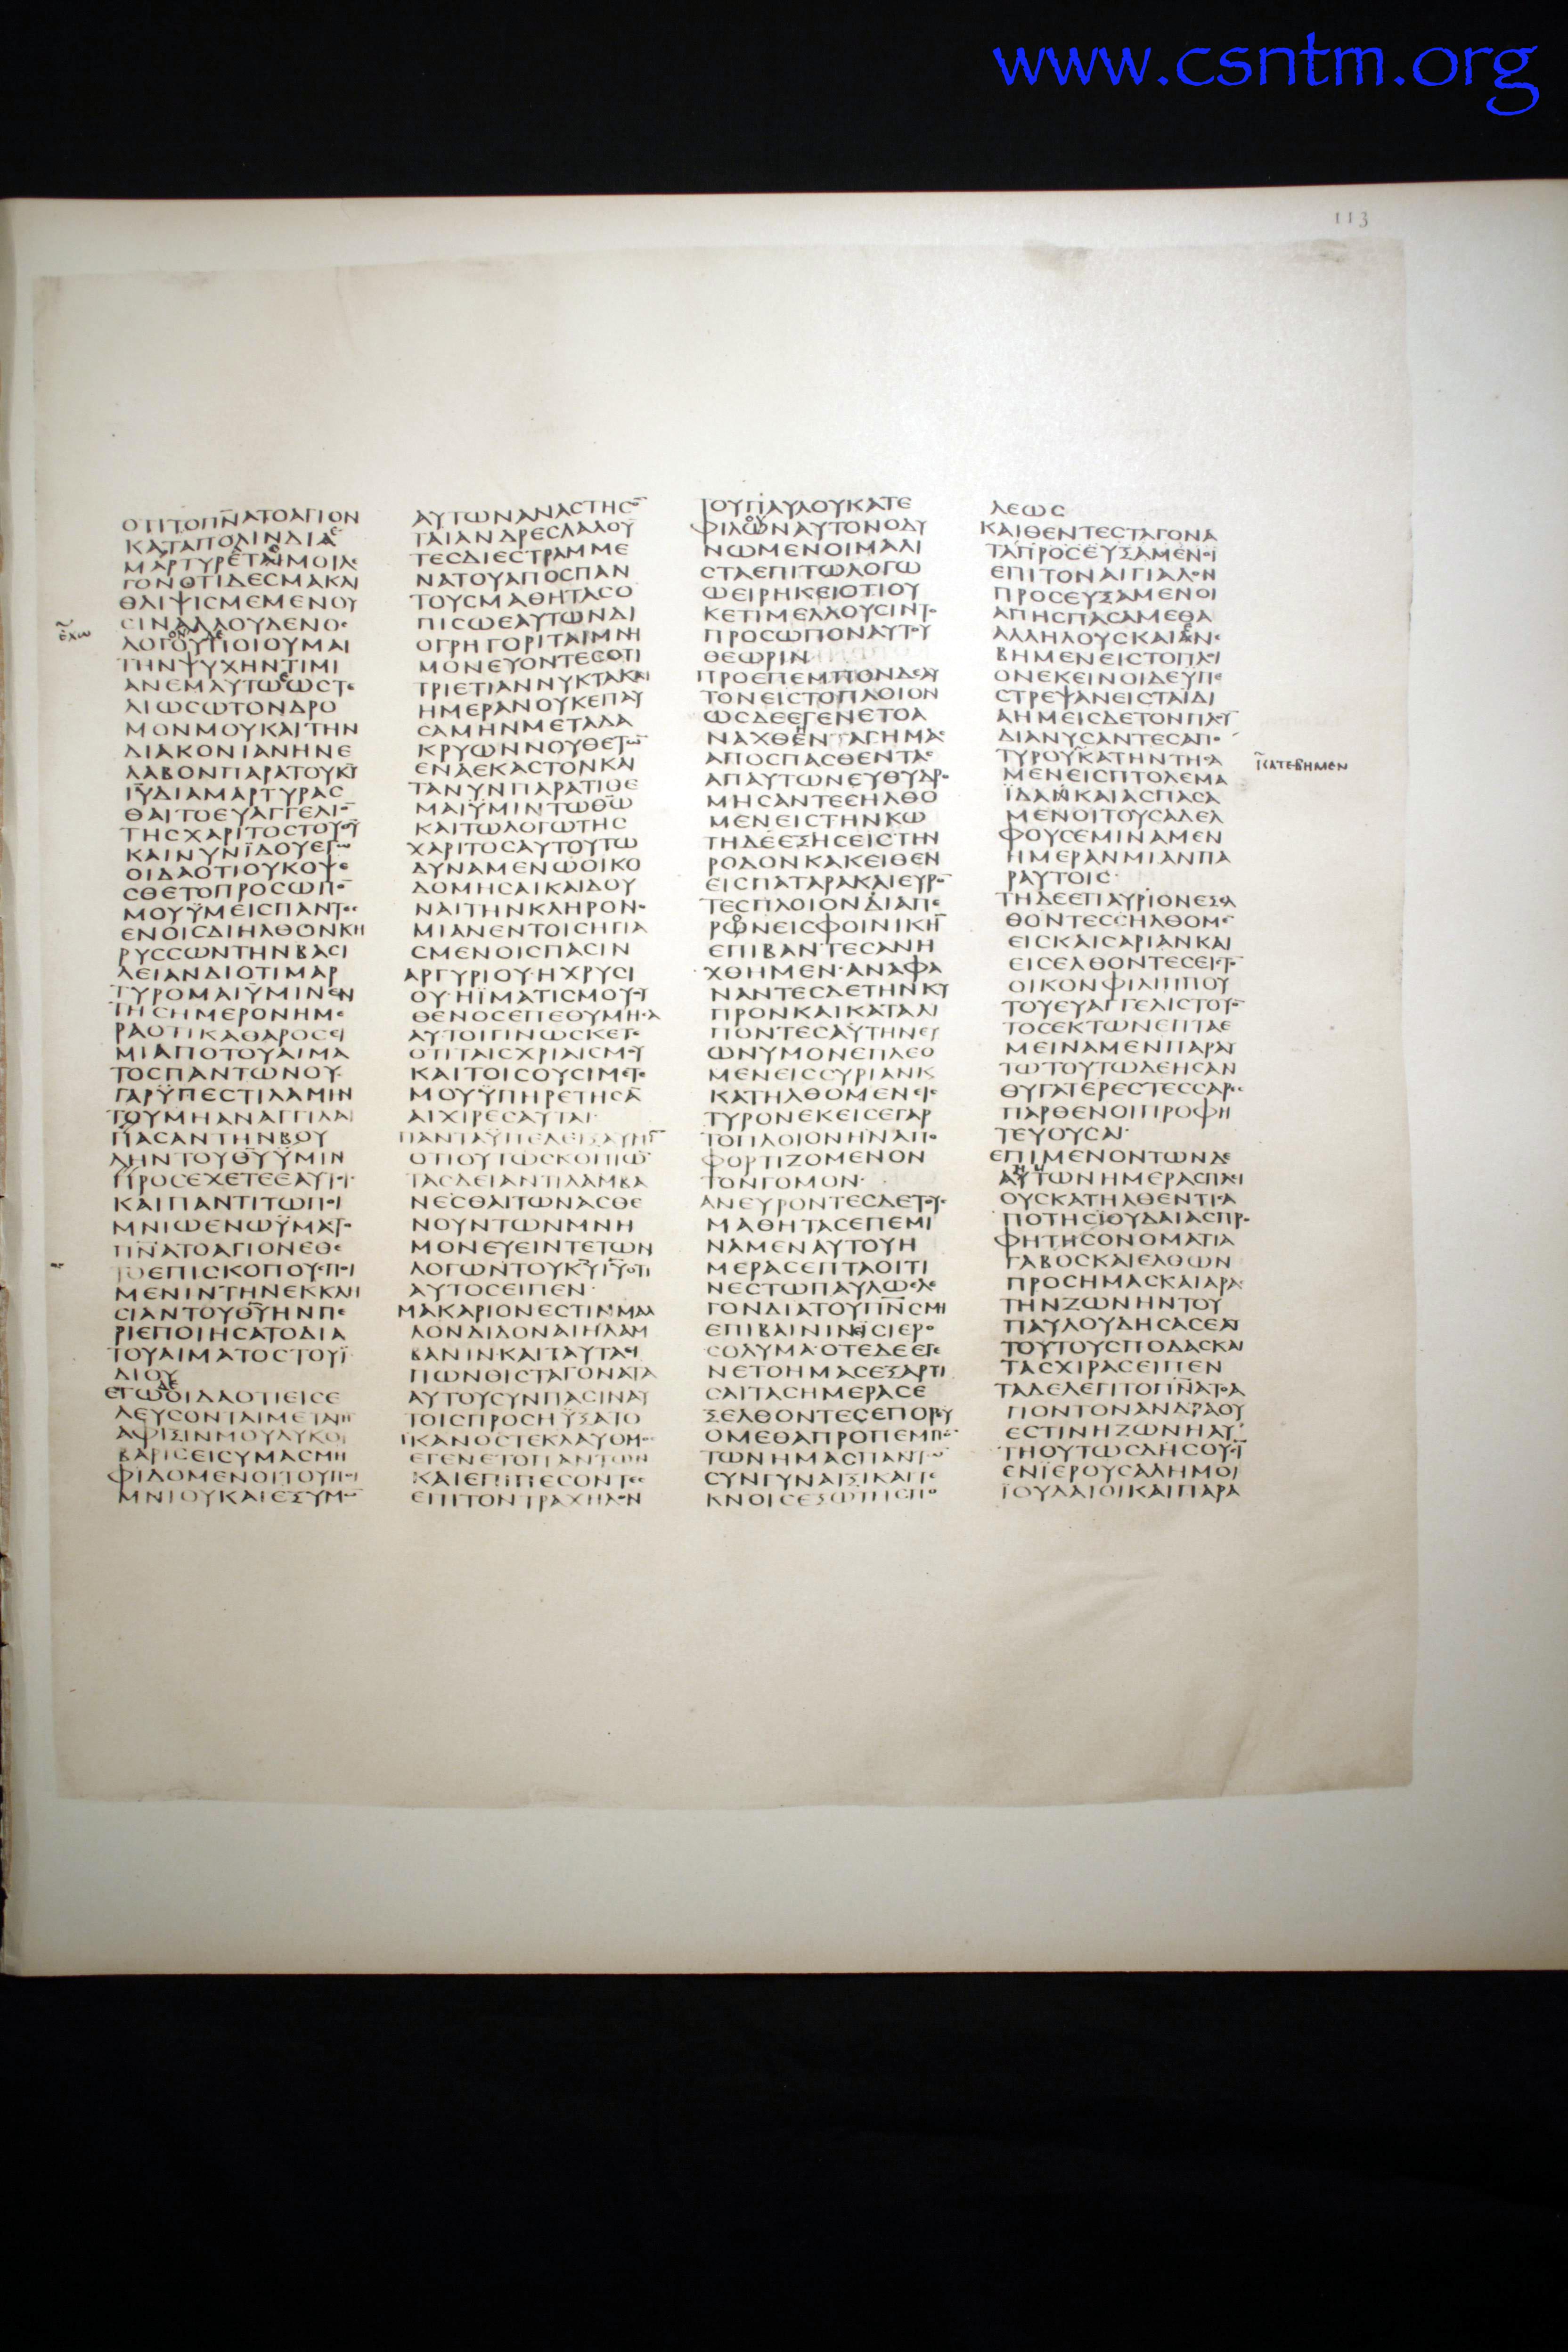 www.csntm.org
113
ΟΤΙΤΟΠΝΑΤΟΑΓΙΟΝ
ΚΑΤΑΠΟΛΙΝΔΙΑ
ΜΑΡΤΥΡΕΤΑΙΜΟΙΛΕ
ΓΟΝΟΤΙΔΕCΜΑΚΑΙ
ΘΛΙΨΙCΜΕΜΕΝΟΥ
CΙΝΑΛΛΟΥΔΕΝΟC
ΛΟΓΟΥΠΟΙΟΥΜΑΙ
ΤΗΝΨΥΧΗΝΤΙΜΙ
ΑΝΕΜΑΥΤΩΩCΤΕ
ΛΙΩCΩΤΟΝΔΡΟ
ΜΟΝΜΟΥΚΑΙΤΗΝ
ΔΙΑΚΟΝΙΑΝΗΝΕ
ΛΑΒΟΝΠΑΡΑΤΟΥΚΥ
ΙΥΔΙΑΜΑΡΤΥΡΑC
ΘΑΙΤΟΕΥΑΓΓΕΛΙΟ
ΤΗCΧΑΡΙΤΟCΤΟΥΘΥ
ΚΑΙΝΥΝΪΔΟΥΕΓΩ
ΟΙΔΑΟΤΙΟΥΚΟΨΕ
CΘΕΤΟΠΡΟCΩΠΟ
ΜΟΥΫΜΕΙCΠΑΝΤΕC
ΕΝΟΙCΔΙΗΛΘΟΝΚΗ
ΡΥCCΩΝΤΗΝΒΑCΙ
ΛΕΙΑΝΔΙΟΤΙΜΑΡ
ΤΥΡΟΜΑΙΫΜΙΝΕΝ
ΤΗCΗΜΕΡΟΝΗΜΕ
ΡΑΟΤΙΚΑΘΑΡΟCΕΙ
ΜΙΑΠΟΤΟΥΑΙΜΑ
ΤΟCΠΑΝΤΩΝΟΥ
ΓΑΡΫΠΕCΤΙΛΑΜΙΝ
ΤΟΥΜΗΑΝΑΓΓΙΛΑΙ
ΠΑCΑΝΤΗΝΒΟΥ
ΛΗΝΤΟΥΘΥΫΜΙΝ
ΠΡΟCΕΧΕΤΕΕΑΥΤΟΙC
ΚΑΙΠΑΝΤΙΤΩΠΟΙ
ΜΝΙΩΕΝΩΫΜΑCΤΟ
ΠΝΑΤΟΑΓΙΟΝΕΘΕ
ΤΟΕΠΙCΚΟΠΟΥCΠΟΙ
ΜΕΝΙΝΤΗΝΕΚΚΛΗ
CΙΑΝΤΟΥΘΥΗΝΠΕ
ΡΙΕΠΟΙΗCΑΤΟΔΙΑ
ΤΟΥΑΙΜΑΤΟCΤΟΥΪ
ΔΙΟΥ
ΕΓΩΟΙΔΑΟΤΙΕΙCΕ
ΛΕΥCΟΝΤΑΙΜΕΤΑΤΗ
ΑΦΙΞΙΝΜΟΥΛΥΚΟΙ
ΒΑΡΙCΕΙCΥΜΑCΜΗ
ΦΙΔΟΜΕΝΟΙΤΟΥΠΟΙ
ΜΝΙΟΥΚΑΙΕΞΥΜΩ
ΑΥΤΩΝΑΝΑCΤΗCΟ
ΤΑΙΑΝΔΡΕCΛΑΛΟΥ
ΤΕCΔΙΕCΤΡΑΜΜΕ
ΝΑΤΟΥΑΠΟCΠΑΝ
ΤΟΥCΜΑΘΗΤΑCΟ
ΠΙCΩΕΑΥΤΩΝΔΙ
ΟΓΡΗΓΟΡΙΤΑΙΜΝΗ
ΜΟΝΕΥΟΝΤΕCΟΤΙ
ΤΡΙΕΤΙΑΝΝΥΚΤΑΚΑΙ
ΗΜΕΡΑΝΟΥΚΕΠΑΥ
CΑΜΗΝΜΕΤΑΔΑ
ΚΡΥΩΝΝΟΥΘΕΤΩ
ΕΝΑΕΚΑCΤΟΝΚΑΙ
ΤΑΝΥΝΠΑΡΑΤΙΘΕ
ΜΑΙΫΜΙΝΤΩΘΩ
ΚΑΙΤΩΛΟΓΩΤΗC
ΧΑΡΙΤΟCΑΥΤΟΥΤΩ
ΔΥΝΑΜΕΝΩΟΙΚΟ
ΔΟΜΗCΑΙΚΑΙΔΟΥ
ΝΑΙΤΗΝΚΛΗΡΟΝΟ
ΜΙΑΝΕΝΤΟΙCΗΓΙΑ
CΜΕΝΟΙCΠΑCΙΝ
ΑΡΓΥΡΙΟΥ·ΗΧΡΥCΙ
ΟΥ·ΗΪΜΑΤΙCΜΟΥΟΥ
ΘΕΝΟCΕΠΕΘΥΜΗCΑ
ΑΥΤΟΙΓΙΝΩCΚΕΤΕ
ΟΤΙΤΑΙCΧΡΙΑΙCΜΟΥ
ΚΑΙΤΟΙCΟΥCΙΜΕΤΕ
ΜΟΥΫΠΗΡΕΤΗCΑ
ΑΙΧΙΡΕCΑΥΤΑΙ·
ΠΑΝΤΑΫΠΕΔΕΙΞΑΥΜΙ
ΟΤΙΟΥΤΩCΚΟΠΙΩ
ΤΑCΔΕΙΑΝΤΙΛΑΜΒΑ
ΝΕCΘΑΙΤΩΝΑCΘΕ
ΝΟΥΝΤΩΝΜΝΗ
ΜΟΝΕΥΕΙΝΤΕΤΩΝ
ΛΟΓΩΝΤΟΥΚΥΙΥΟΤΙ
ΑΥΤΟCΕΙΠΕΝ·
ΜΑΚΑΡΙΟΝΕCΤΙΝΜΑΛ
ΛΟΝΔΙΔΟΝΑΙΗΛΑΜ
ΒΑΝΙΝ·ΚΑΙΤΑΥΤΑΕΙ
ΠΩΝΘΙCΤΑΓΟΝΑΤΑ
ΑΥΤΟΥCΥΝΠΑCΙΝΑΥ
ΤΟΙCΠΡΟCΗΥΞΑΤΟ
ΙΚΑΝΟCΤΕΚΛΑΥΘΜΟC
ΕΓΕΝΕΤΟΠΑΝΤΩΝ
ΚΑΙΕΠΙΠΕCΟΝΤΕC
ΕΠΙΤΟΝΤΡΑΧΗΛΟΝ
ΤΟΥΠΑΥΛΟΥΚΑΤΕ
ΦΙΛΩΝΑΥΤΟΝΟΔΥ
ΝΩΜΕΝΟΙΜΑΛΙ
CΤΑΕΠΙΤΩΛΟΓΩ
ΩΕΙΡΗΚΕΙΟΤΙΟΥ
ΚΕΤΙΜΕΛΛΟΥCΙΝΤΟ
ΠΡΟCΩΠΟΝΑΥΤΟΥ
ΘΕΩΡΙΝ
ΠΡΟΕΠΕΜΠΟΝΔΕΑΥ
ΤΟΝΕΙCΤΟΠΛΟΙΟΝ
ΩCΔΕΕΓΕΝΕΤΟΑ
ΝΑΧΘΕΝΤΑCΗΜΑC
ΑΠΟCΠΑCΘΕΝΤΑC
ΑΠΑΥΤΩΝΕΥΘΥΔΡΟ
ΜΗCΑΝΤΕCΗΛΘΟ
ΜΕΝΕΙCΤΗΝΚΩ
ΤΗΔΕΕΞΗCΕΙCΤΗΝ
ΡΟΔΟΝΚΑΚΕΙΘΕΝ
ΕΙCΠΑΤΑΡΑΚΑΙΕΥΡΟ
ΤΕCΠΛΟΙΟΝΔΙΑΠΕ
ΡΩΝΕΙCΦΟΙΝΙΚΗ
ΕΠΙΒΑΝΤΕCΑΝΗ
ΧΘΗΜΕΝ·ΑΝΑΦΑ
ΝΑΝΤΕCΔΕΤΗΝΚΥ
ΠΡΟΝΚΑΙΚΑΤΑΛΙ
ΠΟΝΤΕCΑΥΤΗΝΕΥ
ΩΝΥΜΟΝΕΠΛΕΟ
ΜΕΝΕΙCCΥΡΙΑΝΚ
ΚΑΤΗΛΘΟΜΕΝΕΙC
ΤΥΡΟΝΕΚΕΙCΕΓΑΡ
ΤΟΠΛΟΙΟΝΗΝΑΠΟ
ΦΟΡΤΙΖΟΜΕΝΟΝ
ΤΟΝΓΟΜΟΝ·
ΑΝΕΥΡΟΝΤΕCΔΕΤΟΥC
ΜΑΘΗΤΑCΕΠΕΜΙ
ΝΑΜΕΝΑΥΤΟΥΗ
ΜΕΡΑCΕΠΤΑΟΙΤΙ
ΝΕCΤΩΠΑΥΛΩΕΛΕ
ΓΟΝΔΙΑΤΟΥΠΝCΜΗ
ΕΠΙΒΑΙΝΙΝΕΙCΙΕΡΟ
CΟΛΥΜΑ·ΟΤΕΔΕΕΓΕ
ΝΕΤΟΗΜΑCΕΞΑΡΤΙ
CΑΙΤΑCΗΜΕΡΑCΕ
ΞΕΛΘΟΝΤΕCΕΠΟΡΕΥ
ΟΜΕΘΑΠΡΟΠΕΜΠΟ
ΤΩΝΗΜΑCΠΑΝΤΩ
CΥΝΓΥΝΑΙΞΙΚΑΙΤΕ
ΚΝΟΙCΕΞΩΤΗCΠΟ
ΛΕΩC
ΚΑΙΘΕΝΤΕCΤΑΓΟΝΑ
ΤΑΠΡΟCΕΥΞΑΜΕΝΟΙ
ΕΠΙΤΟΝΑΙΓΙΑΛΟΝ
ΠΡΟCΕΥΞΑΜΕΝΟΙ
ΑΠΗCΠΑCΑΜΕΘΑ
ΑΛΛΗΛΟΥCΚΑΙΑΝΕ
ΒΗΜΕΝΕΙCΤΟΠΛΟΙ
ΟΝΕΚΕΙΝΟΙΔΕΥΠΕ
CΤΡΕΨΑΝΕΙCΤΑΪΔΙ
ΑΗΜΕΙCΔΕΤΟΝΠΛΟΥ
ΔΙΑΝΥCΑΝΤΕCΑΠΟ
ΤΥΡΟΥΚΑΤΗΝΤΗCΑ
ΜΕΝΕΙCΠΤΟΛΕΜΑ
ΪΔΑΚΑΙΑCΠΑCΑ
ΜΕΝΟΙΤΟΥCΑΔΕΛ
ΦΟΥCΕΜΙΝΑΜΕΝ
ΗΜΕΡΑΝΜΙΑΝΠΑ
ΡΑΥΤΟΙC·
ΤΗΔΕΕΠΑΥΡΙΟΝΕΞΕΛ
ΘΟΝΤΕCΗΛΘΟΜΕ
ΕΙCΚΑΙCΑΡΙΑΝΚΑΙ
ΕΙCΕΛΘΟΝΤΕCΕΙCΤΟ
ΟΙΚΟΝΦΙΛΙΠΠΟΥ
ΤΟΥΕΥΑΓΓΕΛΙCΤΟΥΟ
ΤΟCΕΚΤΩΝΕΠΤΑΕ
ΜΕΙΝΑΜΕΝΠΑΡΑΥ
ΤΩΤΟΥΤΩΔΕΗCΑΝ
ΘΥΓΑΤΕΡΕCΤΕCCΑΡΕC
ΠΑΡΘΕΝΟΙΠΡΟΦΗ
ΤΕΥΟΥCΑΙ·
ΕΠΙΜΕΝΟΝΤΩΝΔΕ
ΑΥΤΩΝΗΜΕΡΑCΠΛΕΙ
ΟΥCΚΑΤΗΛΘΕΝΤΙCΑ
ΠΟΤΗCΪΟΥΔΑΙΑCΠΡΟ
ΦΗΤΗCΟΝΟΜΑΤΙΑ
ΓΑΒΟCΚΑΙΕΛΘΩΝ
ΠΡΟCΗΜΑCΚΑΙΑΡΑC
ΤΗΝΖΩΝΗΝΤΟΥ
ΠΑΥΛΟΥΔΗCΑCΕΑΥ
ΤΟΥΤΟΥCΠΟΔΑCΚΑΙ
ΤΑCΧΙΡΑCΕΙΠΕΝ
ΤΑΔΕΛΕΓΙΤΟΠΝΑΤΟΑ
ΓΙΟΝΤΟΝΑΝΔΡΑΟΥ
ΕCΤΙΝΗΖΩΝΗΑΥ
ΤΗΟΥΤΩCΔΗCΟΥCΙ
ΕΝΪΕΡΟΥCΑΛΗΜΟΙ
ΪΟΥΔΑΙΟΙΚΑΙΠΑΡΑ
ΚΑΤΕΒΗΜΕΝ